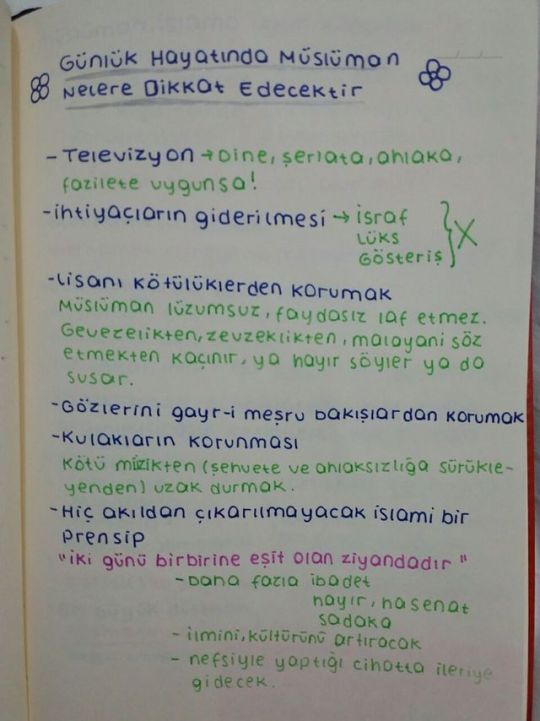 Günlük Hayatında Müslüman
Nelere Dikkat Edecektir
- Televizyon → Dine, şeriata, ahlaka,
fazilete uygunsa!
- ihtiyaçların giderilmesi → israf
LÜKS
Gösteriş } X
- Lisanı kötülüklerden korumak
Müslüman lüzumsuz, faydasız laf etmez.
Gevezelikten, zevzeklikten, malayani söz
etmekten kaçınır, ya hayır söyler ya da
susar.
- Gözlerini gayr-i meşru bakışlardan korumak
- Kulakların korunması
Kötü müzikten (şehvete ve ahlaksızlığa sürükle-
yenden) uzak durmak.
- Hiç akıldan çıkarılmayacak islami bir
prensip
"iki günü birbirine eşit olan ziyandadır"
- Daha fazla ibadet
hayır, hasenat
sadaka
- ilmini, kültürünü artıracak
- nefsiyle yaptığı cihatta ileriye
gidecek.